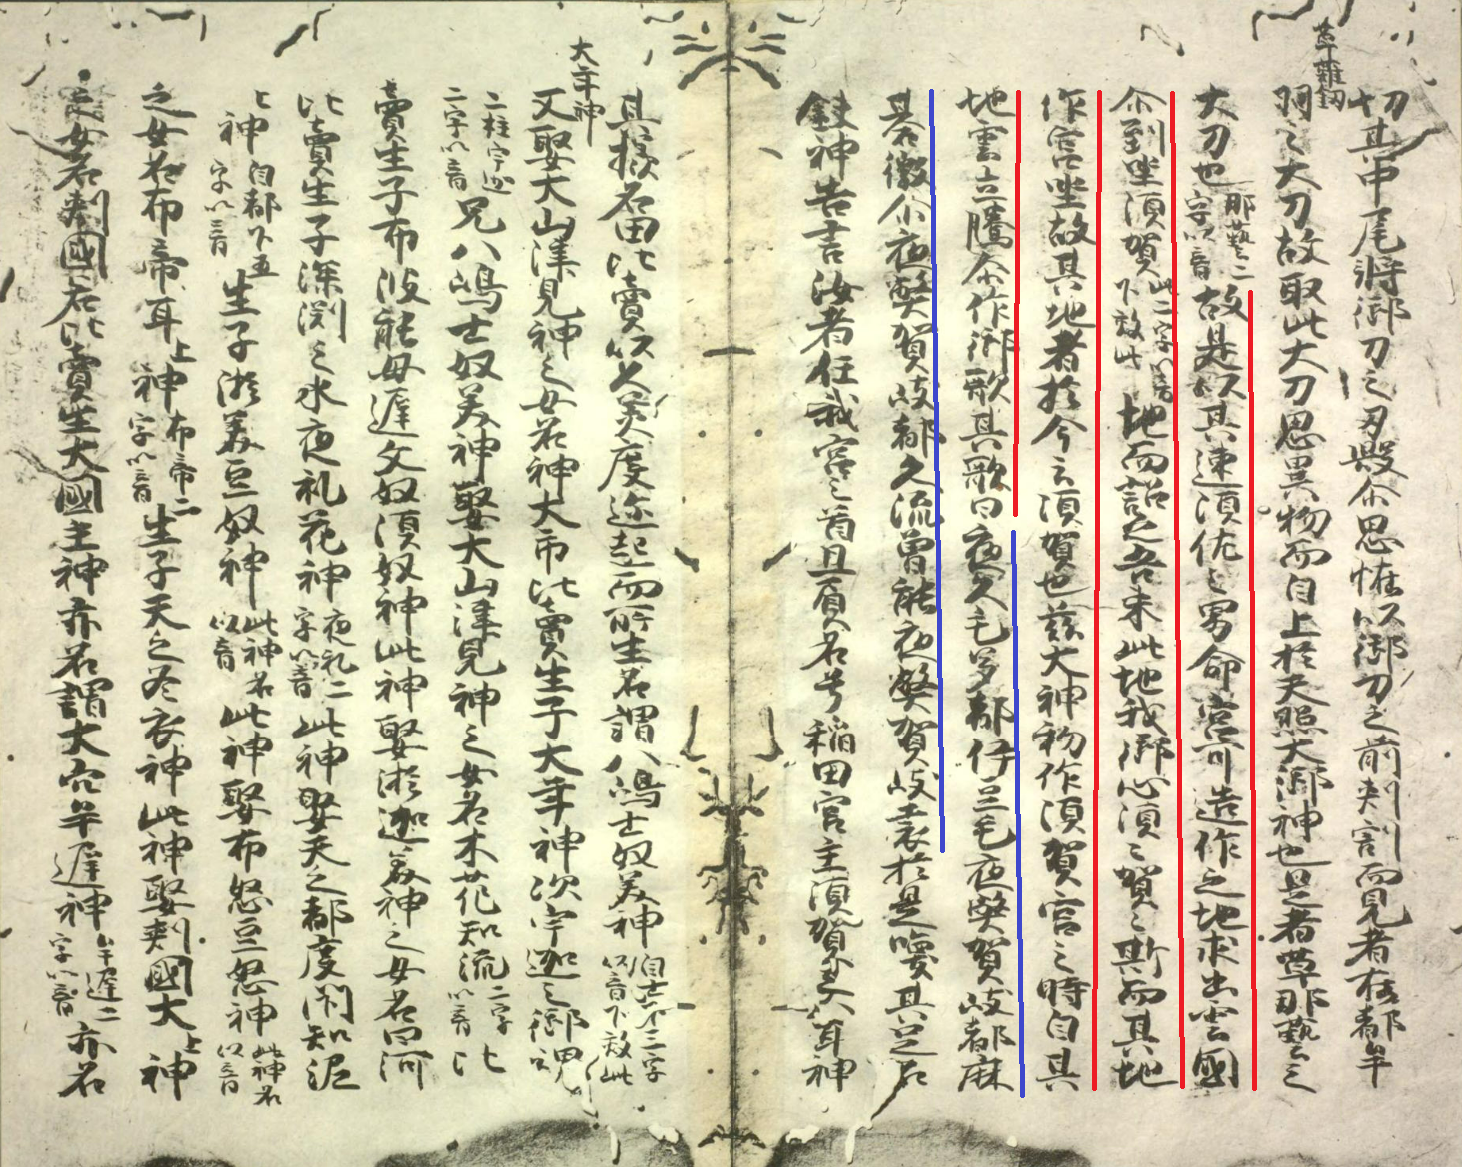 切其中尾時御刀之刃毀尒思恠以御刀之前刺割而見者在都牟
草薙釼
羽之大刀故取此大刀思異物而白上於天照大御神也是者草那藝之
大刀也那藝二字以音故是以其速湏佐之男命宮可造作之地求出雲國
尒到坐湏賀此二字以音下效此地而詔之吾来此地我御心湏々賀々斯而其地
作宮坐故其地者於今云湏賀也茲大神初作湏賀宮之時自其
地雲立騰尒作御歌其歌曰夜久毛多都伊豆毛夜弊賀岐都麻
碁微尒夜弊賀岐都久流曽能夜弊賀岐袁於是喚其足名
鉄神告言汝者任我宮之首且負名号稲田宮主湏賀之八耳神
其櫛名田比賣以久美度迩起而所生名謂八嶋士奴美神自士下三字以音下效此
大年神
又娶大山津見神之女名神大市比賣生子大年神次宇迦之御魂
二柱宇迦二字以音兄八嶋士奴美神娶大山津見神之女名木花知流二字以音比
賣生子布波能母遅久奴湏奴神此神娶淤迦美神之女名日河
比賣生子深渕之水夜礼花神夜礼二字以音此神娶天之都度閇知泥
上神自都下五字以音生子淤美豆奴神此神名以音此神娶布怒豆怒神此神名以音
之女名布帝耳上神布帝二字以音生子天之冬衣神此神娶刺國大上神
之女名刺國若比賣生大國主神亦名謂大穴牟遅神牟遅二字以音亦名